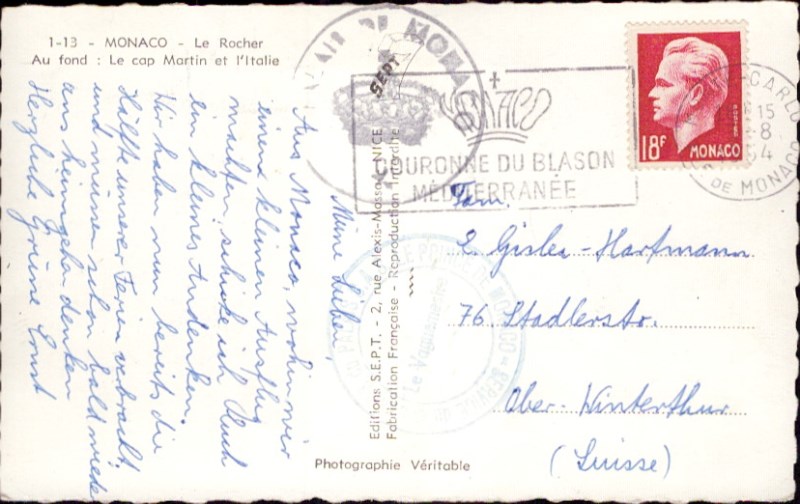 1-13 - MONACO - Le Rocher
Au fond : Le cap Martin et l'Italie
Meine Lieben,
Aus Monaco, wohin wir
einen kleinen Ausflug
machten, schicke ich Euch
ein kleines Andenken.
Wir haben nun bereits die
Hälfte unserer Ferien verbracht
und müssen schon bald wieder
ans heimgehen denken
Herzliche Grüsse Ernst
Editions S.E.P.T. - 2, rue Alexis-Mossa - NICE
Fabrication Française - Reproduction Interdite
Photographie Véritable
SEPT
MONACO
COURONNE DU BLASON
MÉDITERRANÉE
18F
POSTES
MONACO
MONTE-CARLO
15
8
54
Pté DE MONACO
Fam.
Gisler-Hartmann
76 Stadlerstr.
Ober-Winterthur
(Suisse)